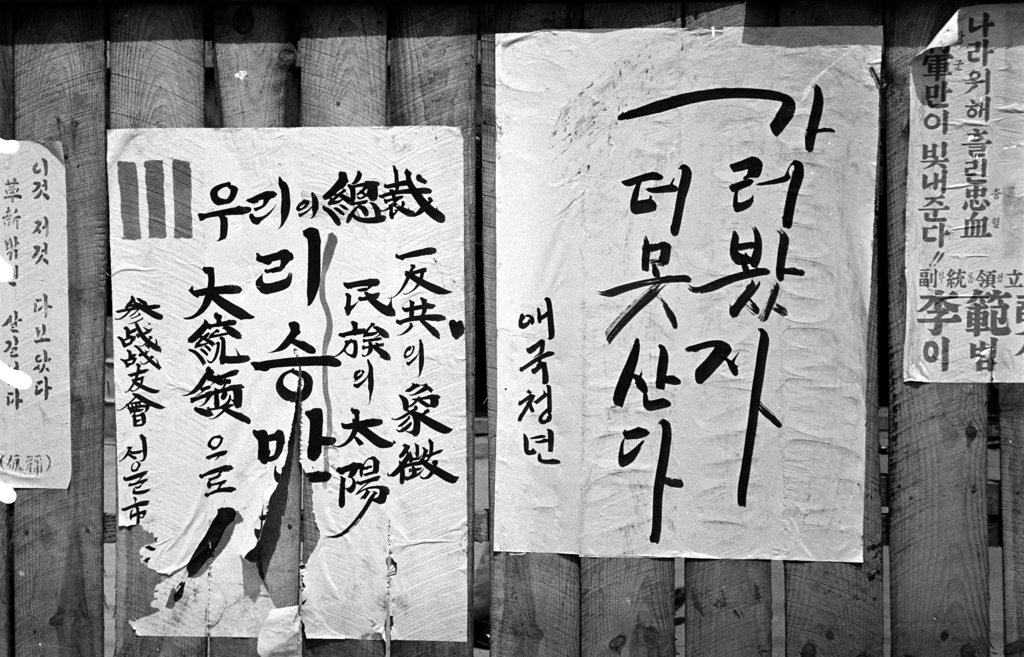 나라위해 흘린忠血
만이 빛내준다!!
副統領立
李範
이범
가러봤자
더못산다
애국청년
우리의總裁
一反共의 象徵
民族의 太陽
리승만
大統領으로!!
參战战友會 서울市
이것 저것 다보았다
革新 살길 다